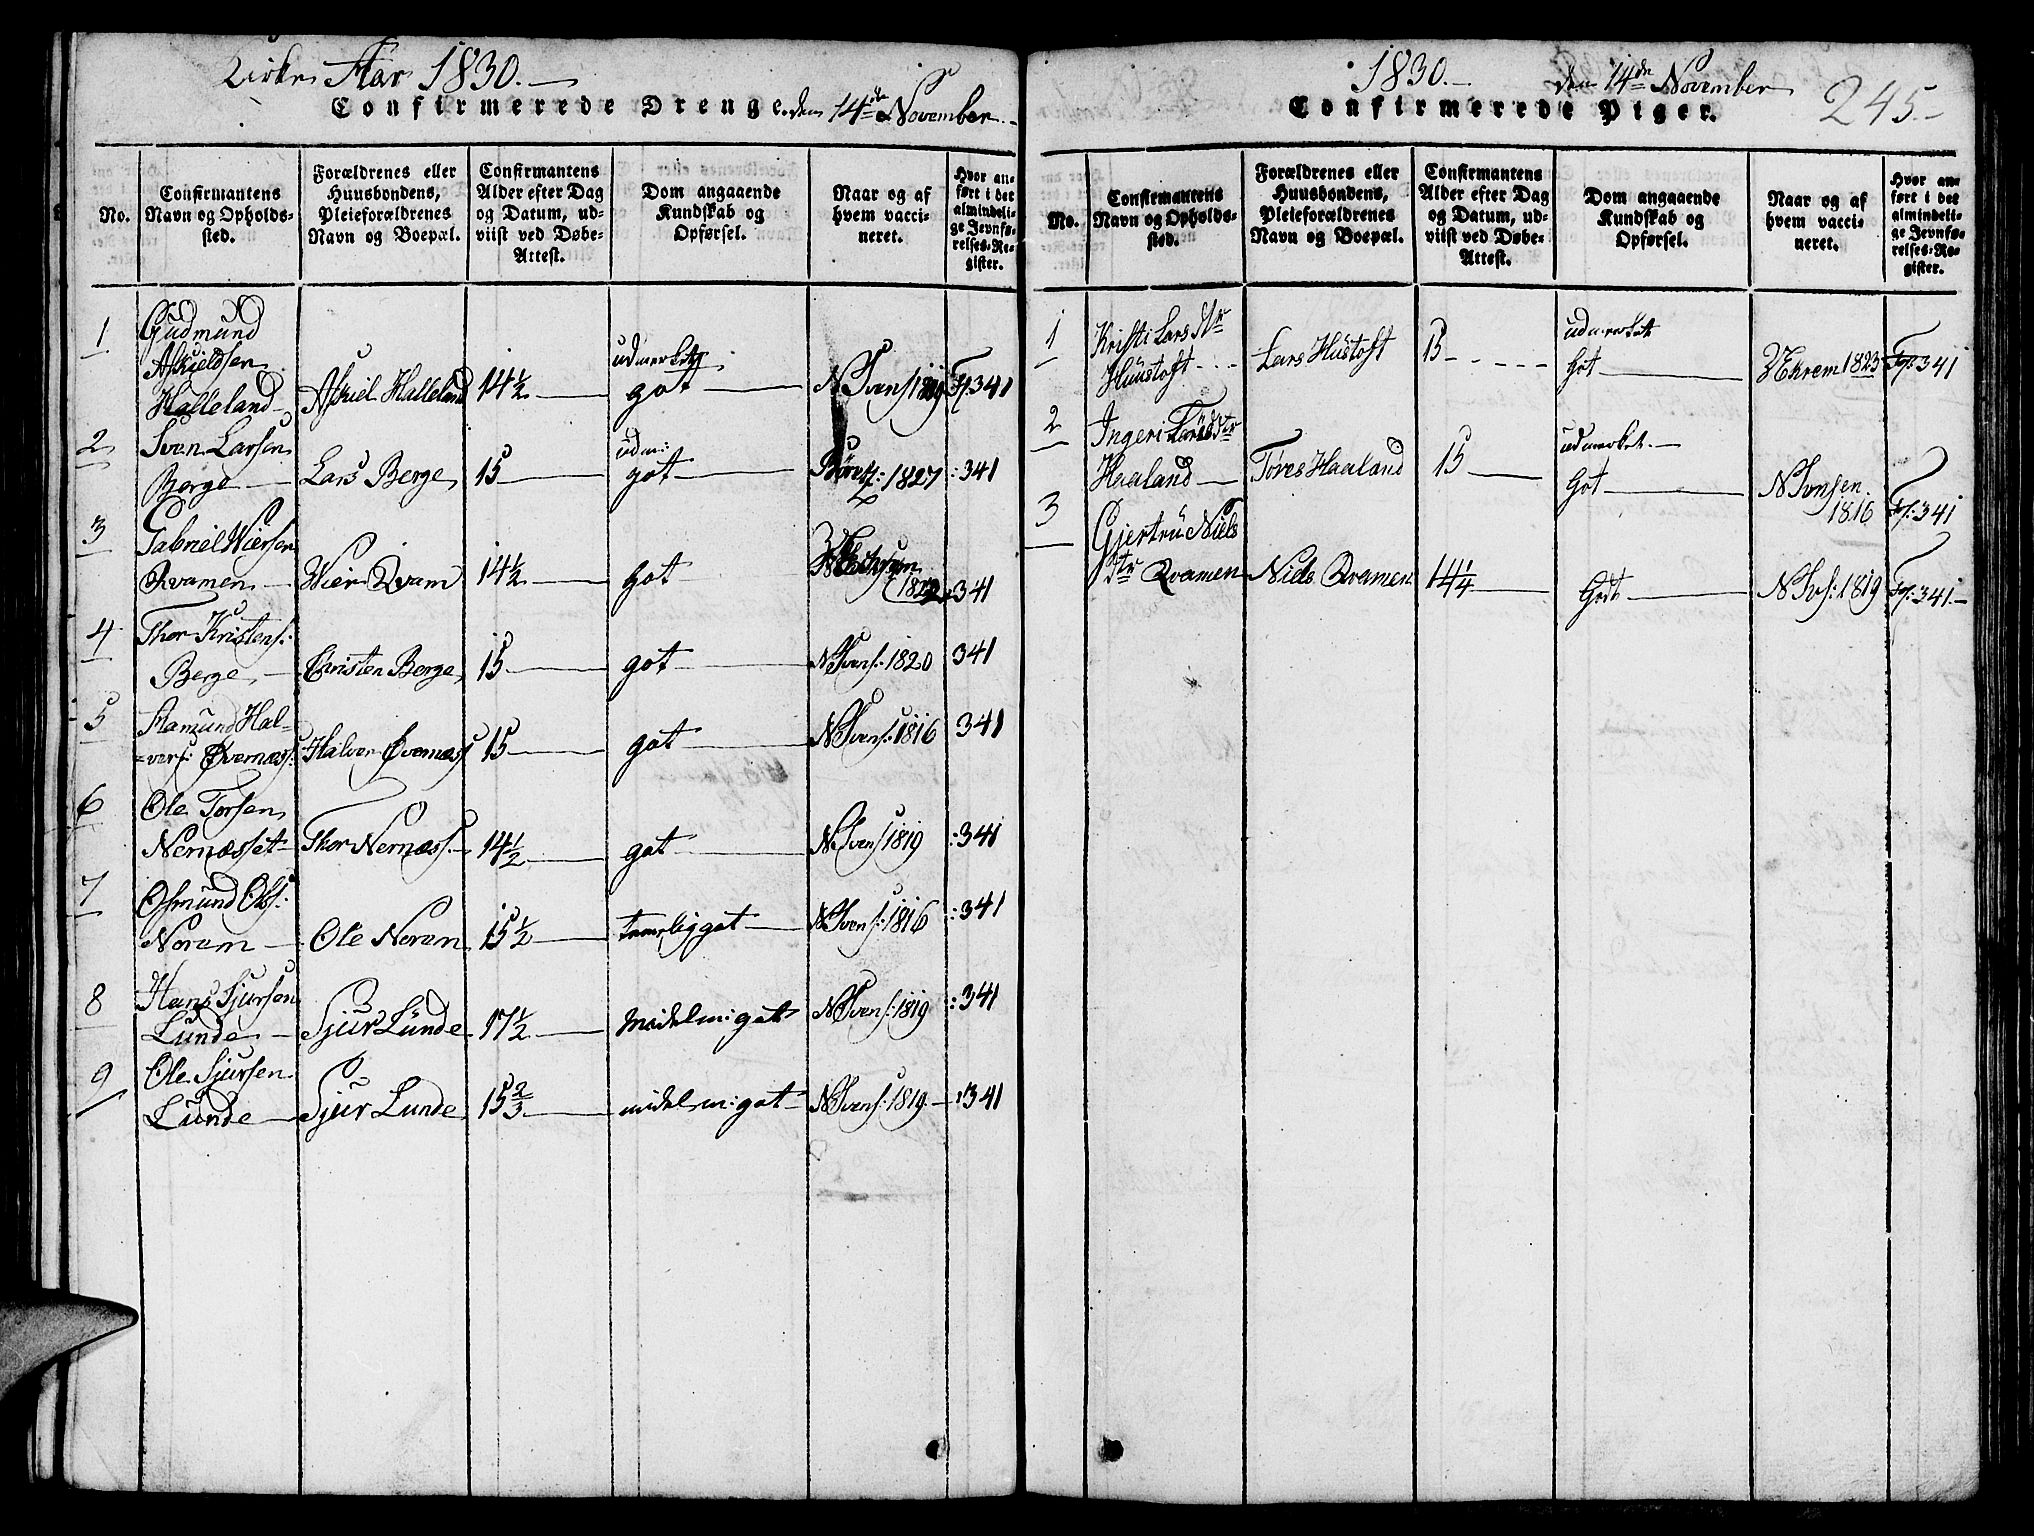 Kirke Aar 1830.
Confirmerede Drenge. den 14de November.
No.
Confirmantens Navn og Opholds-sted.
Forældrenes eller Huusbondens, Pleieforældrenes Navn og Boepæl.
Confirmantens Alder efter Dag og Datum, ud-viist ved Døbe-Attest.
Dom angaaende Kundskab og Opførsel.
Naar og af hvem vacci-neret.
Hvor an-ført i det almindeli-ge Jevnfø-relses-Re-gister.
1 Gudmund
Askjeldsen
Halleland Askiel Halleland 14 1/2 udmerket got N Svens 1819 341
2 Sven Larsen
Berge Lars Berge 15 udm: got 1827 341
3 Gabriel Wiersen
Qvamen Wier Qvam 14 1/2 got 1822 341
4 Thor Kristens:
Berge Christen Berge 15 got N Svens: 1820 341
5 Aamund Hal-
=vers: Øvernæss: Halvor Øvernæss 15 got N Svens: 1816 341
6 Ole Torsen
Nernæsset Thor Nernæss. 14 1/2 got N Svens 1819 341
7 Osmund Ols:
Noram Ole Noram 15 1/2 temelig got N Svens: 1816 341
8 Hans Sjursen
Lunde Sjur Lunde 17 1/2 Midelm: got N Svens: 1819 341
9 Ole Sjursen
Lunde Sjur Lunde 15 2/3 midelm: got N Svens: 1819 341
1830. den 14de November
Confirmerede Piger. 245.
No.
Confirmantens Navn og Opholds-sted.
Forældrenes eller Huusbondens, Pleieforældrenes Navn og Boepæl.
Confirmantens Alder efter Dag og Datum, ud-viist ved Døbe-Attest.
Dom angaaende Kundskab og Opførsel.
Naar og af hvem vacci-neret.
Hvor an-ført i det almindeli-ge Jevnfø-relses-Re-gister.
1 Kristi Lars Dtr
Huustoft Lars Hustoft 15 udmerket Got Ekrem 1823 341
2 Ingeri Dtr
Haaland Tøres Haaland 15 udmerket Got N Svensen 1816 341
3 Gjertru Niels
Dtr Qvamen Niels Qvamen 14 1/4 Godt N Svs: 1819 341